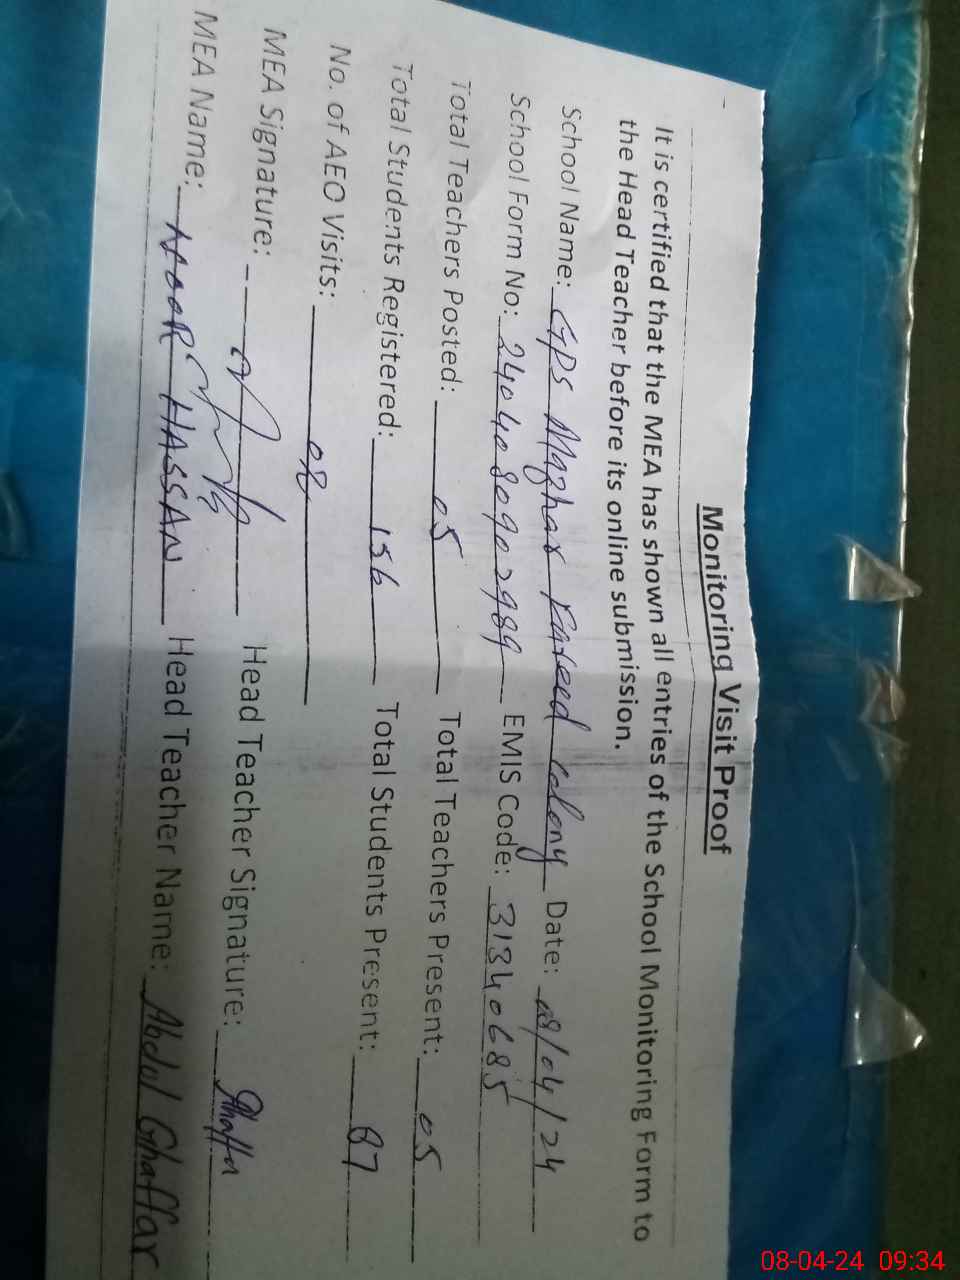 Monitoring Visit Proof
It is certified that the MEA has shown all entries of the School Monitoring Form to
the Head Teacher before its online submission.
School Name: GPS Mazhar Fareed colony Date: 08/04/24
School Form No: 2404080902989 EMIS Code: 31340685
Total Teachers Posted: 05 Total Teachers Present: 05
Total Students Registered: 156 Total Students Present: 87
No. of AEO Visits: 08
MEA Signature: Head Teacher Signature: Ghaffar
MEA Name: NOOR HASSAN Head Teacher Name: Abdul Ghaffar
08-04-24 09:34